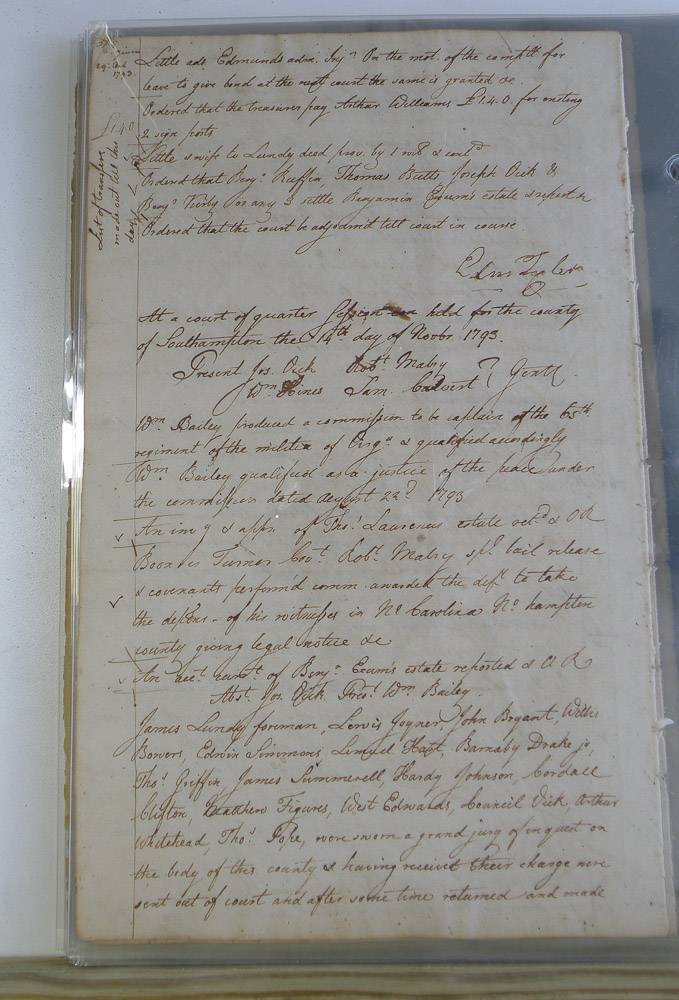 given
1793.
Little ads. Edmunds adm. Injn On the mot. of the complt for
leave to give bond at the next court the same is granted &c
Ordered that the treasurer pay Arthur Williams £1.4.0. for erecting
2 sign posts
£1.4.0
Little & wife to Lundy deed prov. by 1 wit & contd
Ordered that Benjn Ruffin, Thomas Butts Joseph Vick &
Benjn Kirby or any 3 settle Benjamin Exum's estate & report &c
Ordered that the court be adjournd till court in course
List of transfers
made out till this
day
At a court of quarter Session held for the county
of Southampton the 14th day of Novbr. 1793.
Present Jos. Vick Robt. Mabry
Wm Hines Sam. Calvert Gentl.
Wm. Bailey produced a commission to be captain of the 65th
regiment of the militia of Virga & qualified accordingly
Wm. Bailey qualified as a justice of the peace under
the commission dated August 22d 1793
An invy & appt. of Thos. Lawrences estate retd & OR
Boon vs Turner Covt. Robt. Mabry spl. bail release
& covenants perform'd comm. awarded the deft. to take
the depons. of his witnesses in No Carolina No. hampton
county giving legal notice &c
An acct. currt. of Benjn. Exum's estate reported & O R
Abst. Jos. Vick Prest. Wm. Bailey.
James Lundy foreman, Lewis Joyner, John Bryant, Willis
Bowers, Edwin Simmons, Lemuel Hart, Barnaby Drake jr,
Thos. Griffin, James Summerell, Hardy Johnson, Cordall
Clifton, Matthew Figures, West Edwards, Council Vick, Arthur
Whitehead, Thos. Pope, were sworn a grand jury of inquest on
the body of this county & having received their charge were
sent out of court and after some time returned and made